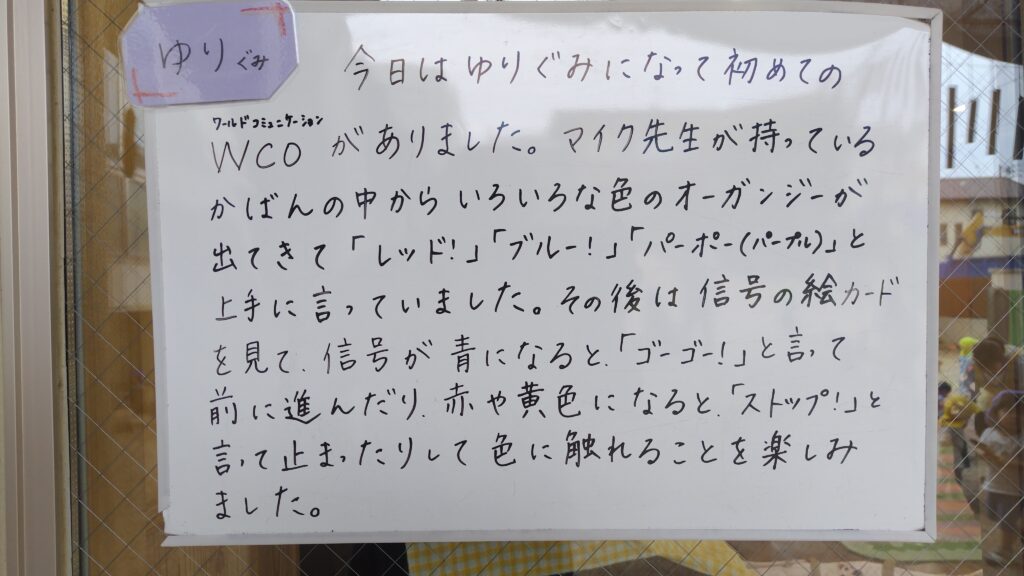 ゆりぐみ
今日はゆりぐみになって初めての
ワールドコミュニケーション
WCO がありました。マイク先生が持っている
かばんの中からいろいろな色のオーガンジーが
出てきて「レッド!」「ブルー!」「パーポー(パープル)」と
上手に言っていました。その後は信号の絵カード
を見て、信号が青になると、「ゴーゴー!」と言って
前に進んだり、赤や黄色になると、「ストップ!」と
言って止まったりして色に触れることを楽しみ
ました。